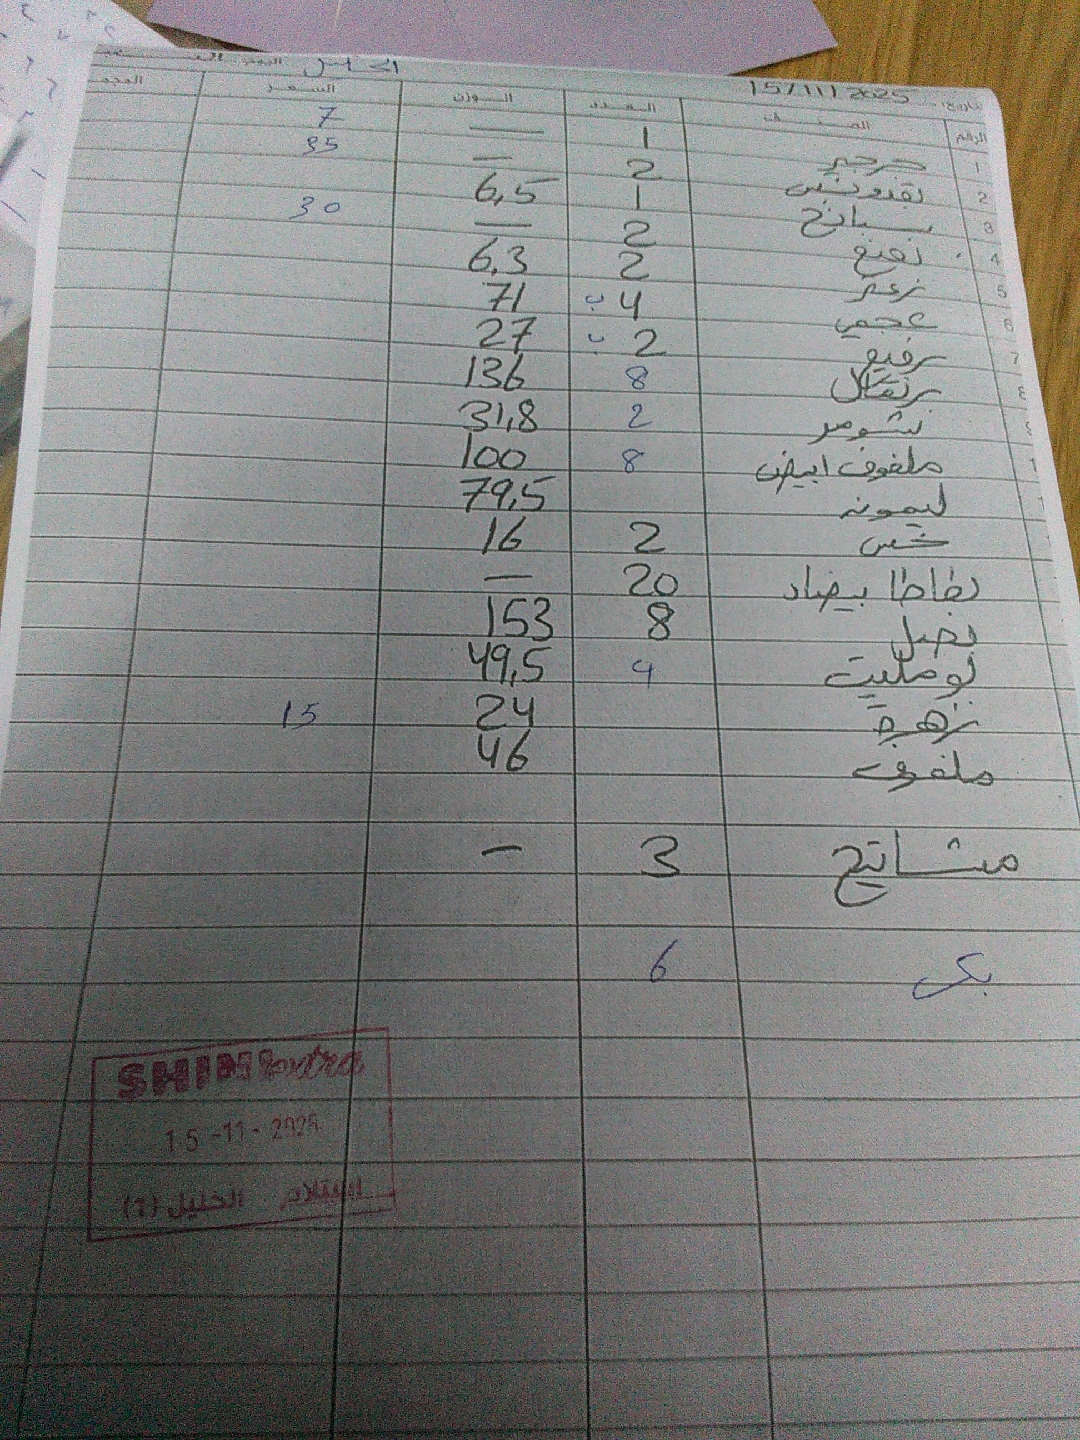 التاريخ: 15/11/2025 اليوم
الرقم الصنف العدد الوزن السعر
1 جرجير 1 — 7
2 بقدونس 2 — 35
3 سبانخ 1 6,5
4 نعنع 2 — 30
5 زعتر 2 6,3
6 عجمي 4 ب 71
7 رفيع 2 ب 27
8 برتقال 8 136
شومر 2 31,8
ملفوف ابيض 8 100
ليمونه 79,5
خس 2 16
بطاطا بيضاء 20 —
بصل 8 153
بوملیت 4 49,5
زهرة 24 15
ملفوف 46
مشاتيح 3 —
بكر 6
SHINI extra
15-11-2025
استلام الخليل (1)